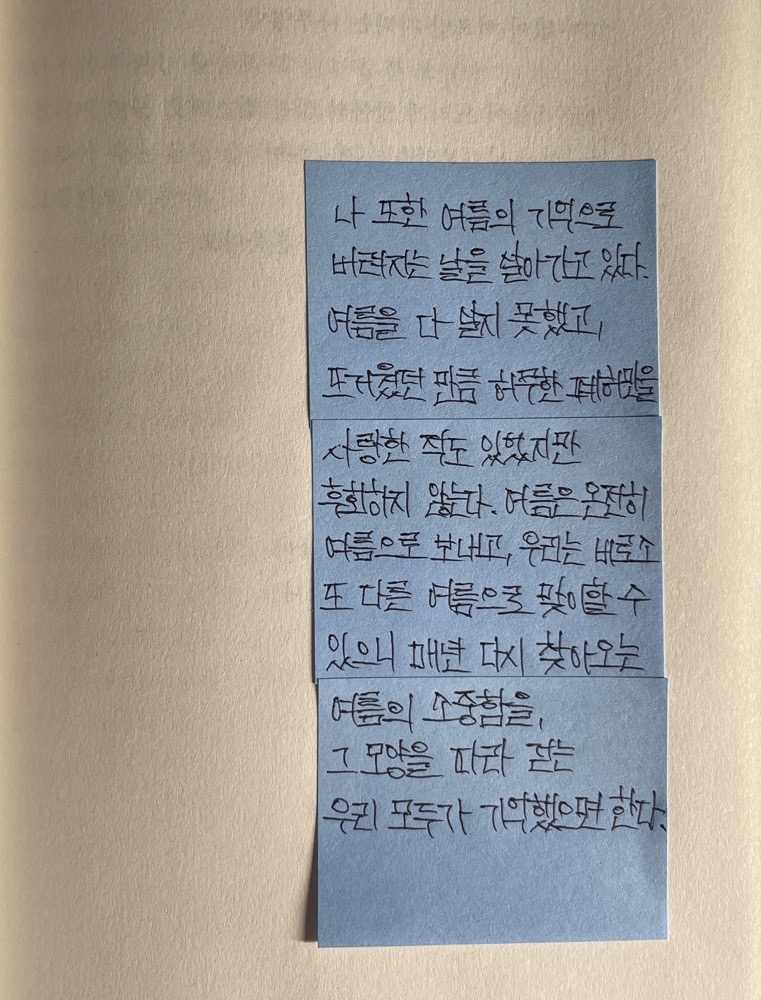 나 또한 여름의 기억으로
버려지는 날을 살아가고 있다.
여름을 다 살지 못했고,
뜨거웠던 만큼 허쭉한 폐허만을
사랑한 적도 있었지만
후회하지 않는다. 여름은 온전히
여름으로 보내고, 우리는 비로소
또 다른 여름으로 맞이할 수
있으니 매년 다시 찾아오는
여름의 소중함을,
그 모양을 따라 걷는
우리 모두가 기억했으면 한다.